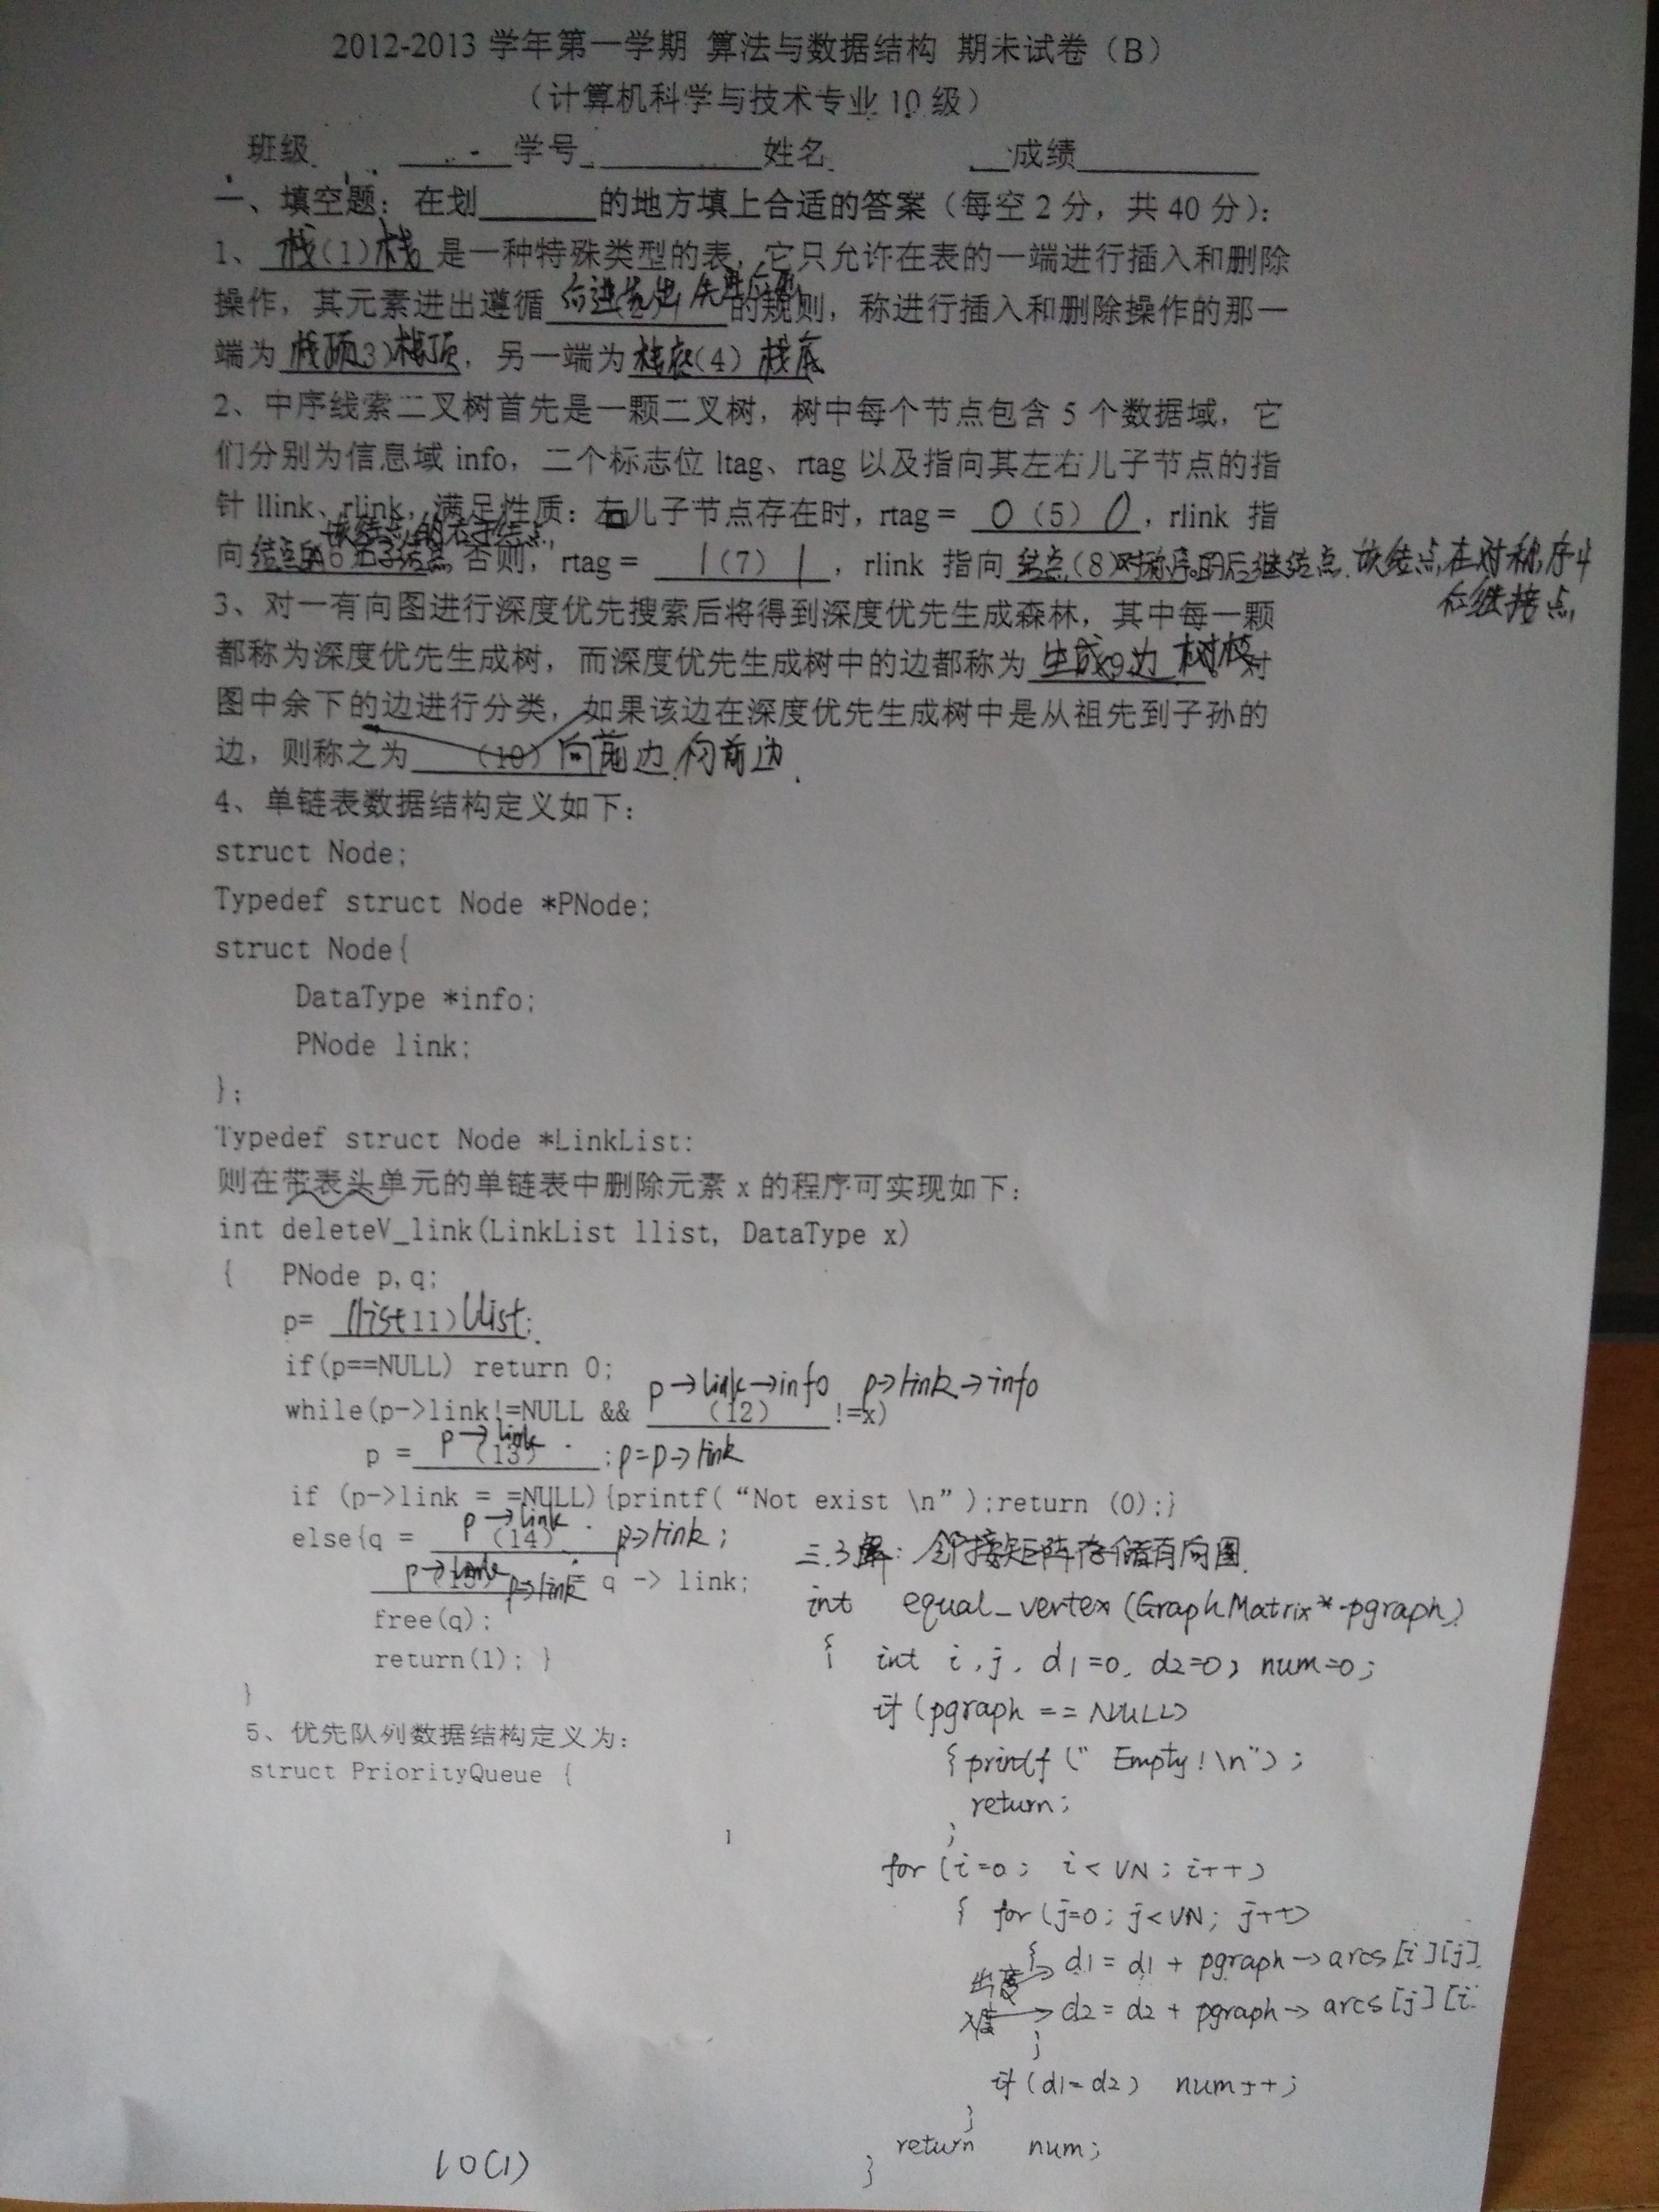 2012-2013 学年第一学期 算法与数据结构 期末试卷（B）
（计算机科学与技术专业 10 级）
班级 ______学号_________姓名 __成绩__________
一、填空题：在划______的地方填上合适的答案（每空 2 分，共 40 分）：
1、 栈（1）栈 是一种特殊类型的表，它只允许在表的一端进行插入和删除
操作，其元素进出遵循 后进先出 先进后出 的规则，称进行插入和删除操作的那一
端为 栈顶（3）栈顶，另一端为 栈底（4）栈底
2、中序线索二叉树首先是一颗二叉树，树中每个节点包含 5 个数据域，它
们分别为信息域 info，二个标志位 ltag、rtag 以及指向其左右儿子节点的指
针 llink、rlink，满足性质：右儿子节点存在时，rtag = 0（5）0，rlink 指
该结点的右子结点
向 结点的右子结点 否则，rtag = 1（7）1，rlink 指向 结点（8）对称序的后继结点. 该结点在对称序中
后继接点,
3、对一有向图进行深度优先搜索后将得到深度优先生成森林，其中每一颗
都称为深度优先生成树，而深度优先生成树中的边都称为 生成（9）边 树枝。对
图中余下的边进行分类，如果该边在深度优先生成树中是从祖先到子孙的
边，则称之为 （10）向前边 向前边.
4、单链表数据结构定义如下：
struct Node;
Typedef struct Node *PNode;
struct Node{
DataType *info;
PNode link;
};
Typedef struct Node *LinkList:
则在带表头单元的单链表中删除元素 x 的程序可实现如下：
int deleteV_link(LinkList llist, DataType x)
{ PNode p,q;
p= llist（11）llist;
if(p==NULL) return 0;
p→link→info p→link→info
while(p->link!=NULL && （12） !=x)
p = p→link （13） ;p=p→link
if (p->link = =NULL){printf( “Not exist \n” );return (0);}
else{q = p→link （14） p→link;
p→link （15） p→link = q -> link;
free(q);
return(1); }
}
5、优先队列数据结构定义为：
struct PriorityQueue {
1
三.3 解: 邻接矩阵存储有向图.
int equal_vertex (GraphMatrix* pgraph)
{ int i,j, d1=0, d2=0, num=0;
if (pgraph == NULL)
{ printf (" Empty!\n");
return;
}
for (i=0; i< VN; i++)
{ for (j=0; j<VN; j++)
{ d1 = d1 + pgraph→arcs[i][j]
出度
d2 = d2 + pgraph→arcs[j][i
入度
}
if (d1=d2) num++;
}
return num;
}
10(1)